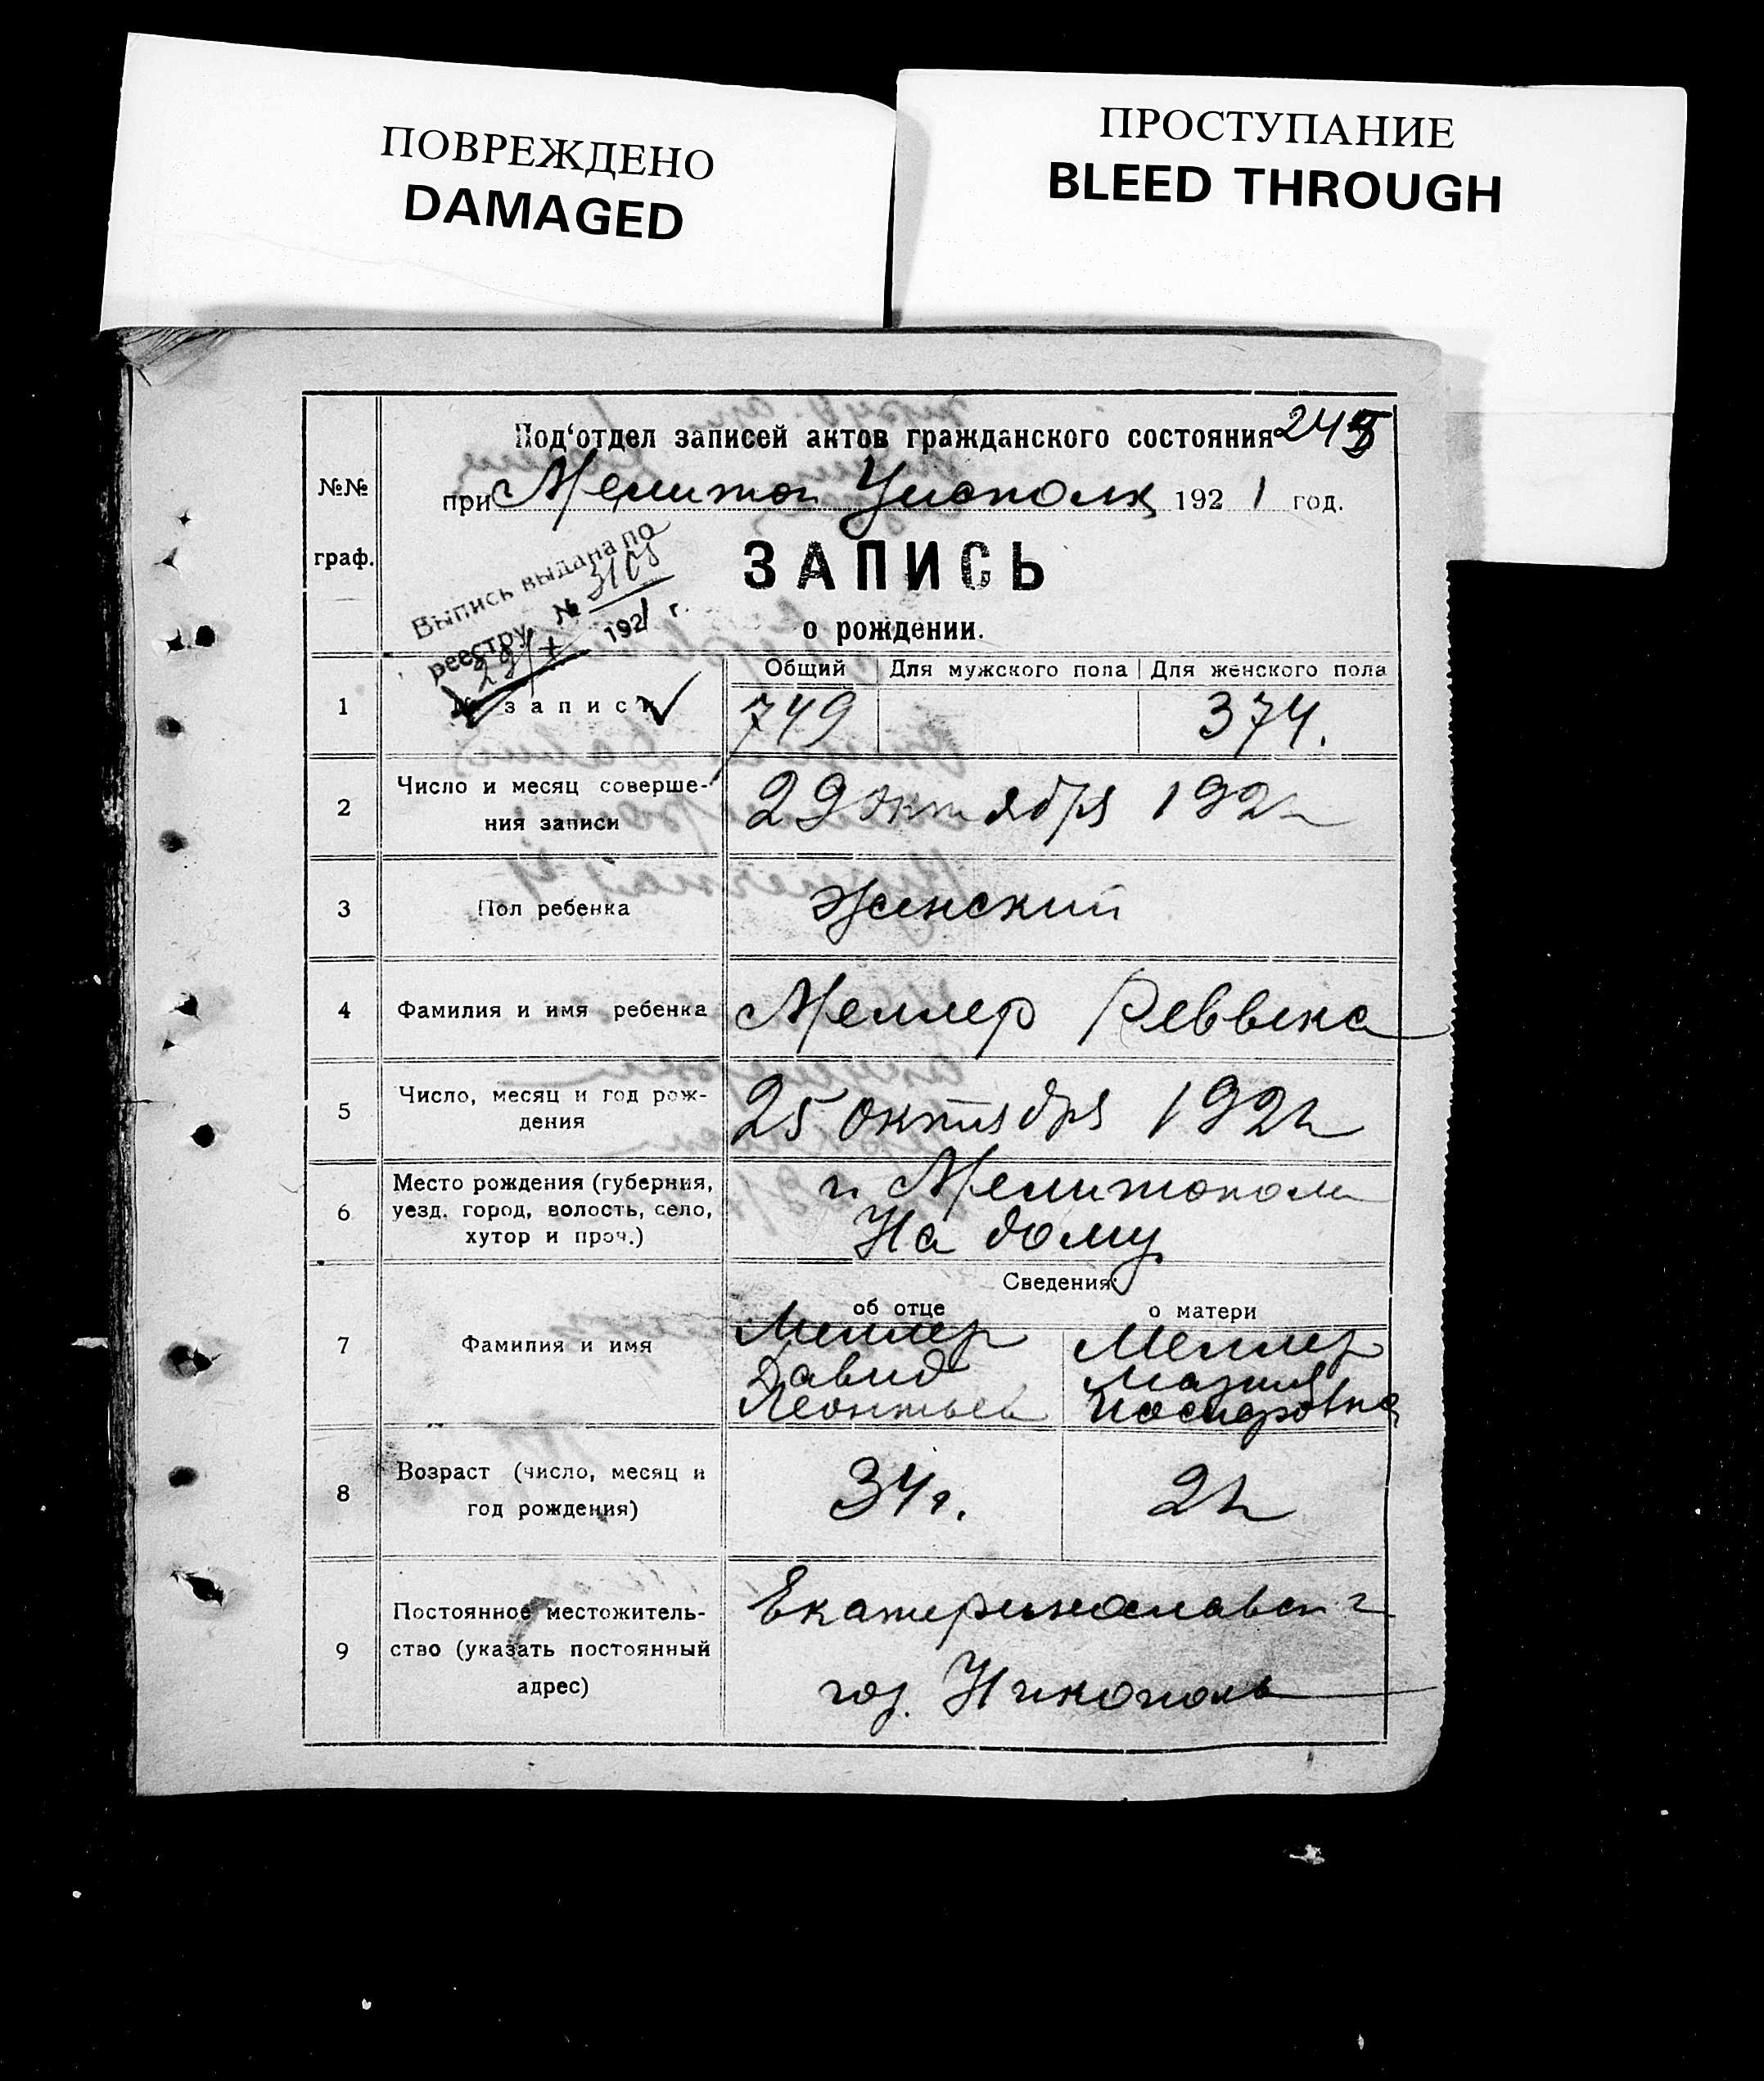 ПОВРЕЖДЕНО
DAMAGED
ПРОСТУПАНИЕ
BLEED THROUGH
Под‘отдел записей актов гражданского состояния 245
при Мелитоп Уисполк 1921 год.
№№
граф.
Выпись выдана по
реестру № 3105
29/X 1921 г.
ЗАПИСЬ
о рождении.
Общий Для мужского пола Для женского пола
1 № записи 749 374.
2 Число и месяц соверше-
ния записи
29 октября 192
3 Пол ребенка Женский
4 Фамилия и имя ребенка Меллер Реввека
5 Число, месяц и год рож-
дения
25 октября 192
6 Место рождения (губерния,
уезд, город, волость, село,
хутор и проч.)
г. Мелитополь
На дому
Сведения:
об отце о матери
7 Фамилия и имя
Меллер
Давид
Леонтьев
Меллер
Мария
Иосифовна
8 Возраст (число, месяц и
год рождения)
34 г.
9 Постоянное местожитель-
ство (указать постоянный
адрес)
Екатеринославск г
гор. Никополь